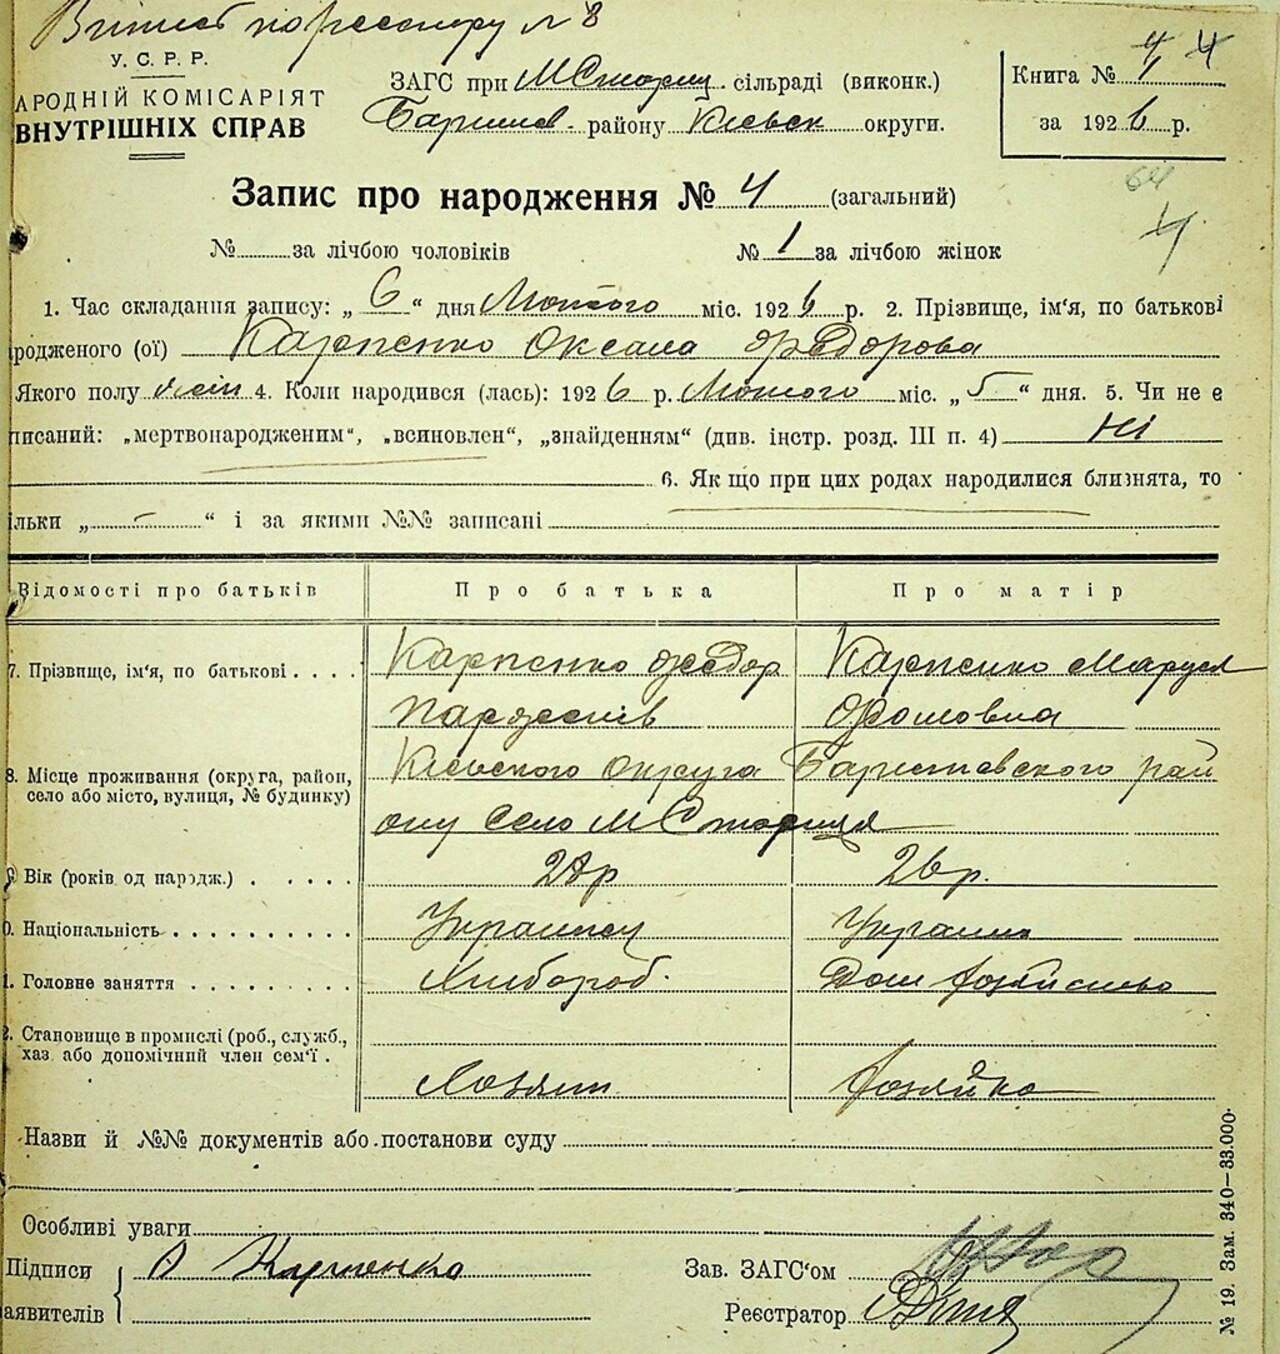 Витяг по реєстру № 8
У. С. Р. Р.
АРОДНІЙ КОМІСАРІЯТ
ВНУТРІШНІХ СПРАВ
ЗАГС при МСтариц. сільраді (виконк.)
Баришев. району Киевск округи.
Книга № 1 4 4
за 1926 р.
Запис про народження № 4 (загальний)
64
4
№ за лічбою чоловіків № 1 за лічбою жінок
1. Час складання запису: „ 6 “ дня Лютого міс. 1926 р. 2. Прізвище, ім'я, по батькові
родженого (ої) Карпенко Оксана Федорова
Якого полу жін 4. Коли народився (лась): 1926 р. Лютого міс. „ 5 “ дня. 5. Чи не є
писаний: „мертвонародженим“, „всиновлен“, „знайденням“ (див. інстр. розд. III п. 4) Ні
6. Як що при цих родах народилися близнята, то
ільки „ – “ і за якими №№ записані
Відомості про батьків Про батька Про матір
7. Прізвище, ім'я, по батькові Карпенко Федор Карпенко Маруся
Фомовна
8. Місце проживання (округа, район, село або місто, вулиця, № будинку) Киевского округа Баришевского рай
ону село МСтариця
Вік (років од народж.) 26р.
0. Національність Украинец Украин
1. Головне заняття Хлибороб. Дом хозяйство
2. Становище в промислі (роб., служб.,
хаз. або допомічний член сем'ї . Хозяин Хозяйка
Назви й №№ документів або постанови суду
Особливі уваги
Підписи Карпенко
аявителів
Зав. ЗАГС'ом
Реєстратор
№ 19. Зам. 340—33.000.